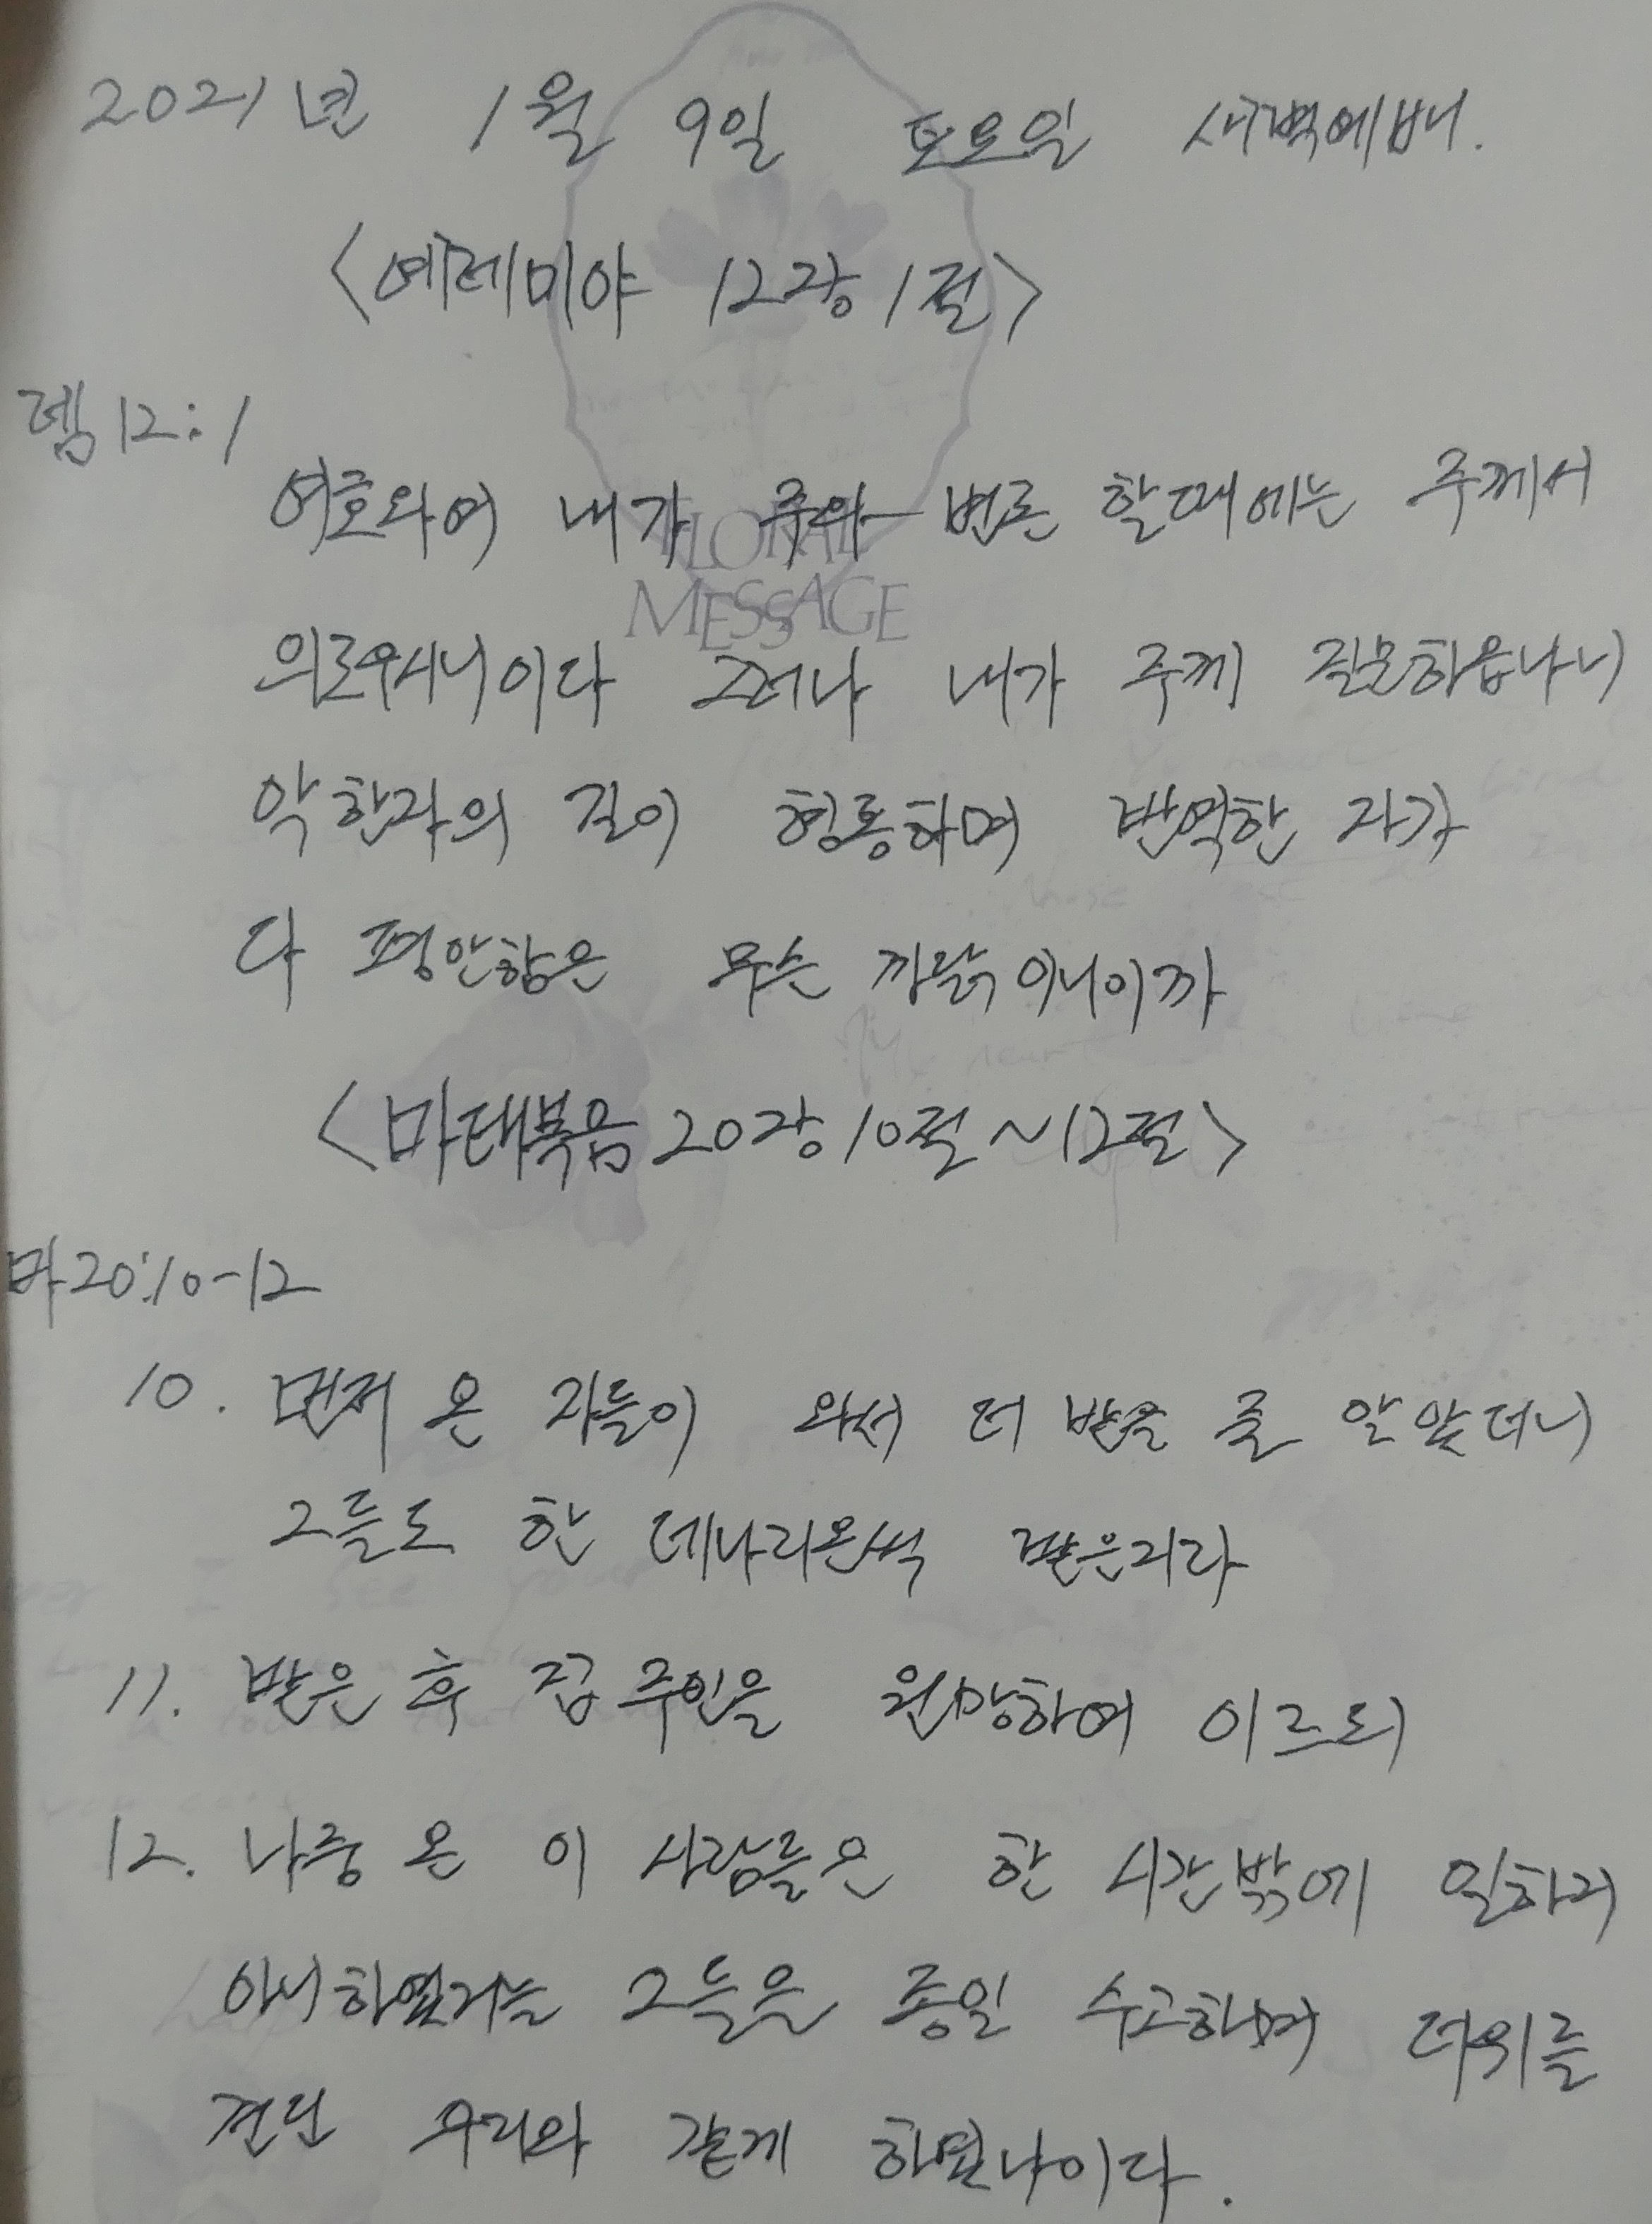 2021년 1월 9일 토요일 새벽예배.
<예레미야 12장 1절>
렘12:1
여호와여 내가 주와 변론 할때에는 주께서
FLORAL
MESSAGE
의로우시니이다 그러나 내가 주께 질문하옵나니
악한자의 길이 형통하며 반역한 자가
다 평안함은 무슨 까닭이니이까
<마태복음 20장 10절~12절>
마20:10-12
10. 먼저 온 자들이 와서 더 받을 줄 알았더니
그들도 한 데나리온씩 받은지라
11. 받은 후 집 주인을 원망하여 이르되
12. 나중 온 이 사람들은 한 시간밖에 일하지
아니하였거늘 그들을 종일 수고하며 더위를
견딘 우리와 같게 하였나이다.